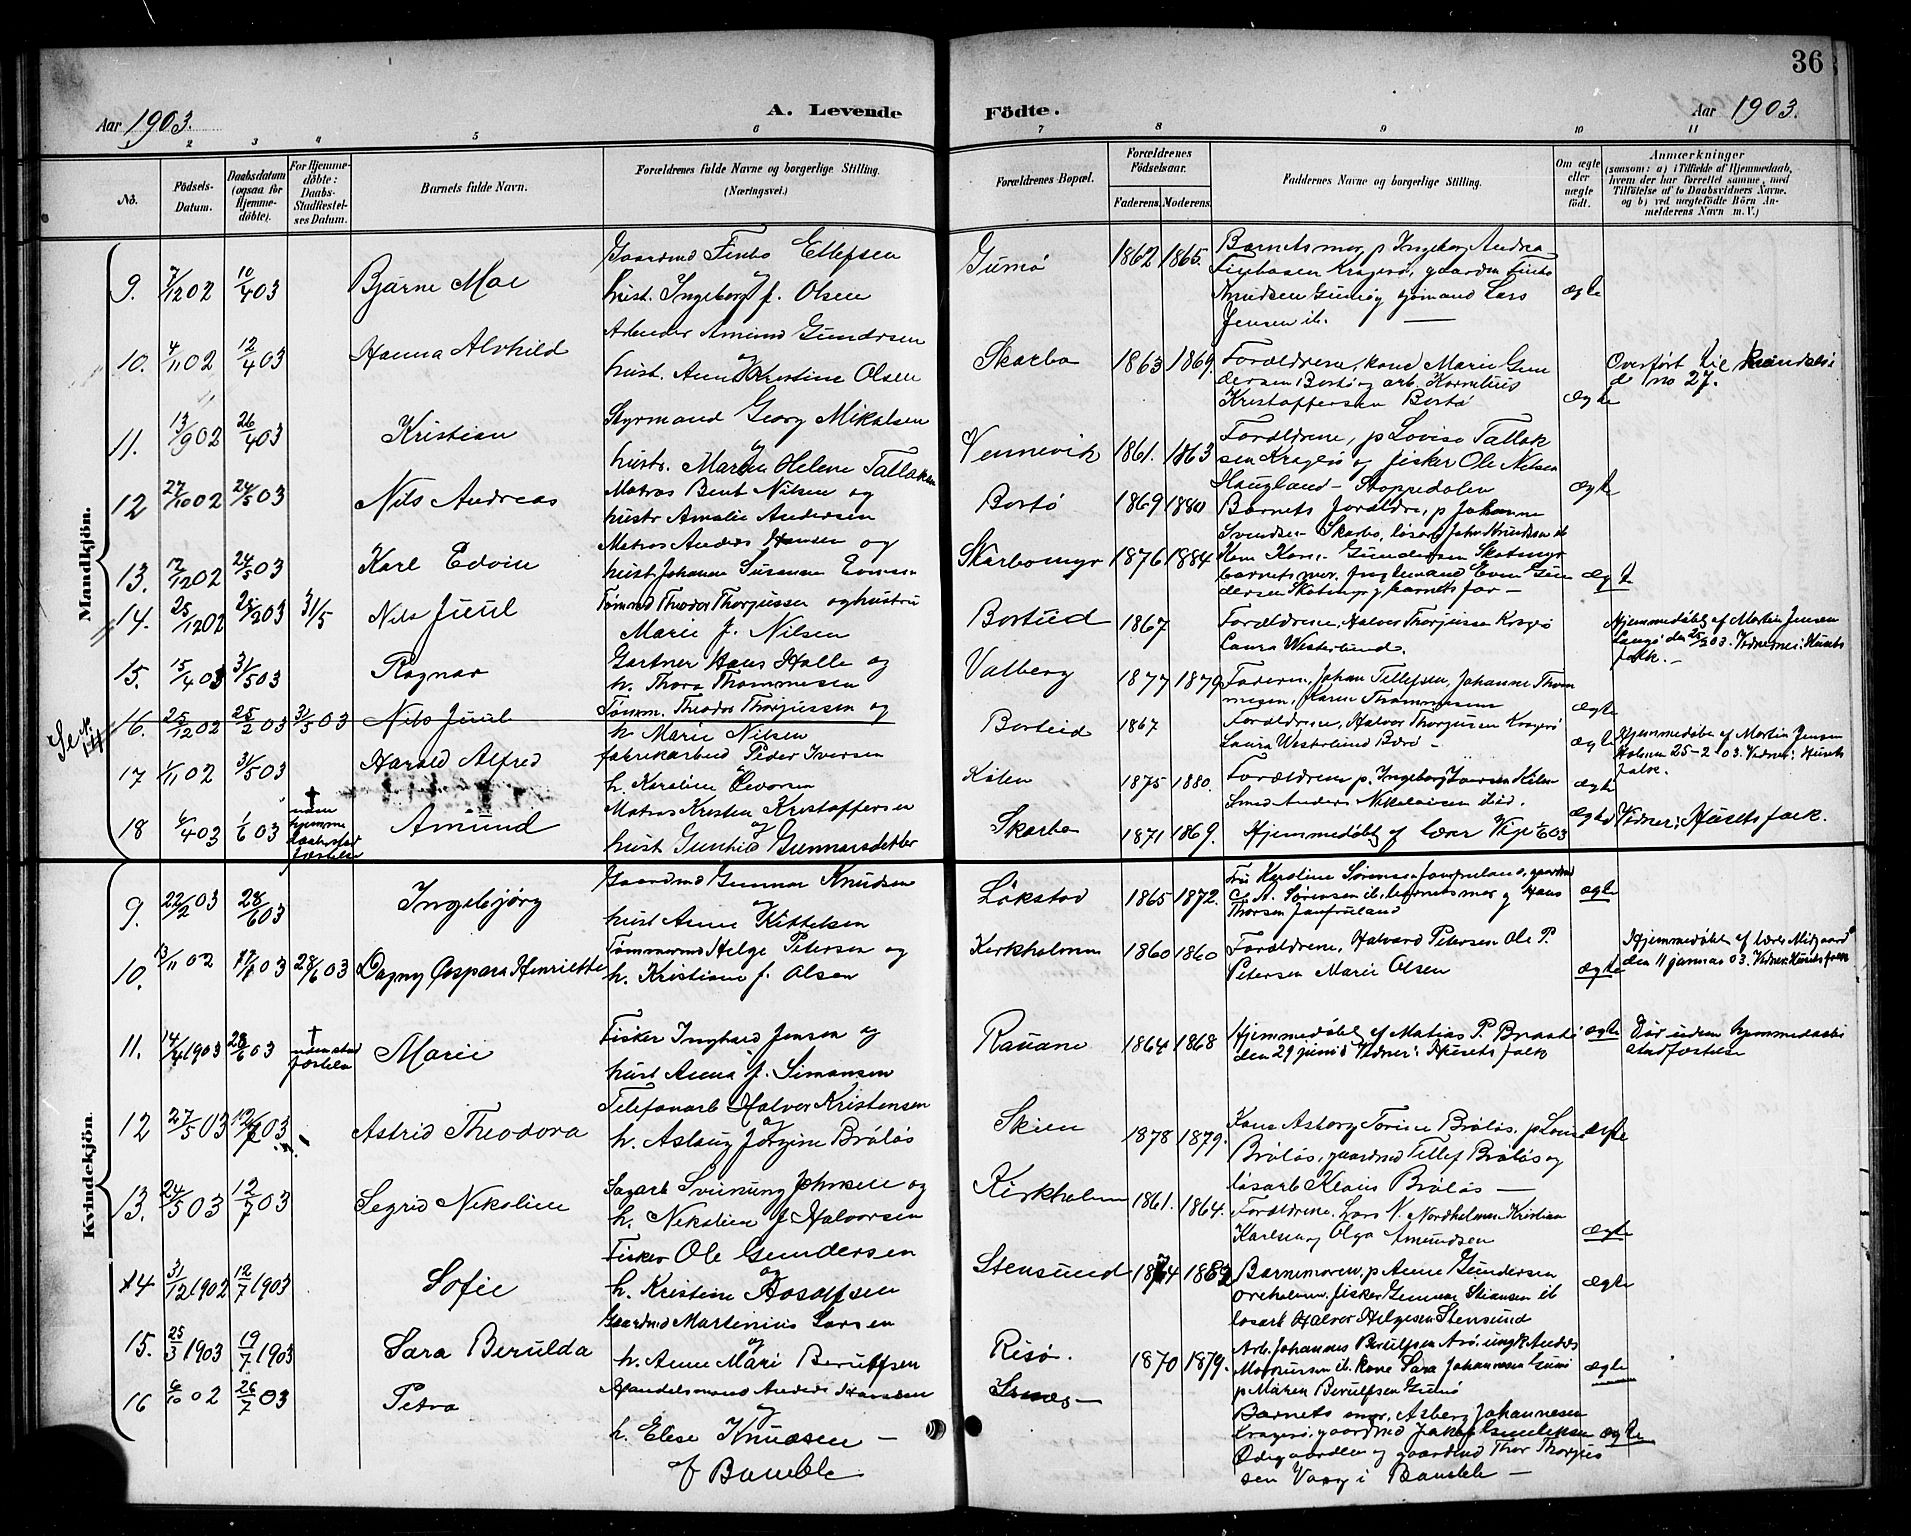 36
Aar 1903.
A. Levende
Födte.
Aar 1903.
2 3 4 5 6 7 8 9 10 11
No.
Födsels-Datum.
Daabsdatum (ogsaa for Hjemmedöbte).
For Hjemmedöbte: Daabs-Stadfæstelses Datum.
Barnets fulde Navn.
Forældrenes fulde Navne og borgerlige Stilling. (Næringsvei.)
Forældrenes Bopæl.
Forældrenes Födselsaar.
Faderens. Moderens.
Faddernes Navne og borgerlige Stilling.
Om ægte eller uægte födt.
Anmærkninger
(saasom: a) i Tilfælde af Hjemmedaab, hvem der har forrettet samme, med Tilföielse af to Daabsvidners Navne, og b) ved uægtefödte Börn Anmelderens Navn m. V.)
Mandkjön.
9. 7/12 02 10/4 03 Bjarne Moe
Gaardmd Finbo Ellefsen og
hust. Ingeborg f. Olsen
Gumö 1862 1865.
Barnets mor, p Ingeborg Andrea
Finbosen Kragerö, gaardm Finbo
Knudsen Gumö og sömand Lars
Jensen ib. ægte
10. 4/11 02 12/4 03 Hanna Alvhild
Arbeider Amund Gundersen
og
hust. Anne Kirstine Olsen
Skarbo 1863 1869.
Forældrene, kone Marie Gun
dersen Bortö og arb. Kornelius
Kristoffersen Bortö ægte
Overfört til Kvindekjö
d no 27.
11. 13/9 02 26/4 03 Kristian
Styrmand Georg Mikalsen
og
hustr. Maren Helene Tallaksen
Vennevik 1861. 1863
Forældrene, p Lovise Tallak
sen Kragerö og fisker Ole Nilsen
Haugland - Stoppedalen ægte
12 27/10 02 24/5 03 Nils Andreas
Matros Bent Nilsen og
hustr Amalie Andersen
Bortö 1869 1880
Barnets forældre, p Johanne
Svendsen Skarbo, lösarb John Knudsen ib
13. 12/12 02 24/5 03 Karl Edvin
Matros Anders Hansen og
hust. Johanne Susanne Evensen
Skarbomyr 1876 1884
Kone Karen Gundersen Skotmyr
barnets mor, jnglmand Even Gun
dersen Skotmyr og barnets far - ægt
14. 25/12 02 25/2 03 31/5 Nils Juul
Tømmd Theodor Thorjussen og hustru
Marie f. Nilsen
Borteid 1867
Forældrene, Halvor Thorjussen Kragerö
Laura Westerlund.
Hjemmedöbt af Martin Jensen
Langö den 25/2 03. Vidnerne: Husets
folk. -
15. 15/4 03 31/5 03 Ragnar
Gartner Hans Halle og
h. Thora Thommesen
Valberg 1877 1879
Faderen, Johan Tellefsen, Johanne Thom
mesen, Karen Thommesen ægte
Se N. 14
16. 25/12 02 25/2 03 31/5 03 Nils Juul
Tømm. Theodor Thorjussen og
h. Marie Nilsen
Borteid 1867
Forældrene, Halvor Thorjusen Kragerö
Laura Westerlund Barö - ægte
Hjemmedöbt af Martin Jensen
25-2 03. Vidner: Husets
folk.
17 1/11 02 31/5 03 Harald Alfred
fabrikarbeid Peder Iversen
h. Karoline
Kilen 1875 1880.
Forældrene, p. Ingeborg Kilen
Smed Anders Nikolaisen ibid. ægte
18 4/4 03 1/6 03 † uden hjemmedaabsstadfæstelse Amund
Matros Kristen Kristoffersen
og
hust Gunhild Gunnarsdatter
Skarbo 1871 1869.
Hjemmedöbt af lærer Vip 1/6 03 ægte
Vidner: Husets folk.
Kvindekjön.
9. 22/2 03 28/6 03 Ingebjörg
Gaardmd Gunnar Knudsen
og
hust Anne Kittelsen
Lökstad 1865 1872.
Fru Karoline Sörensen Jomfruland, gaardmd
C. A. Sörensen ib, barnets mor og Hans
Thorsen Jomfruland ægte
10. 13/11 02 11/1 03 28/6 03 Dagny Caspara Henriette
Tømmermd Helge Petersen og
h. Kristiane f. Olsen
Kirkholmen 1860 1860
Forældrene, Halvard Petersen Ole P.
Petersen Marie Olsen ægte
Hjemmedöbt af lærer Midgaard
den 11 januar 03. Vidner: Husets folk
11. 14/4 1903 29/6 03 † uden stadfæstelse Marie
Fisker Ingvald Jensen og
hust Anna f. Simonsen
Rauane 1864 1868
Hjemmedöbt af Matias P. Braate
den 29 juni. Vidner: Husets folk ægte
Död uden hjemmedaabs
stadfæstelse
12 27/5 03 12/7 03 Astrid Theodora
Telefonarb Halvor Kristensen
og
h. Aslaug Jörgine Bråtås
Skien 1878 1879.
Kone Asborg Torine Bråtås, p Lovise
Bråtås, gaardmd Tellef Bråtås og
lösarb Klaus Bråtås - ægte
13. 24/5 03 12/7 03 Segrid Nikoline
Sagarb Sveinung Johnsen og
h. Nikoline f Halvorsen
Kirkholmen 1861. 1864.
Forældrene, Lars N. Nordholmen Kristian
Karlsen og Olga Amundsen ægte
14 31/12 1902 12/7 1903 Sofie
Fisker Ole Gundersen
og
h. Kristine Adolfsen
Stensund 1874 1882
Barnemoren, p Anne Gundersen
Oreholmen, fisker Gunnar Stiansen ib
lösarb Halvor Helgesen Stensund ægte
15. 25/3 1903 19/7 1903 Sara Berulda
Gaardmd Martinius Larsen
og
h. Anne Mari Berulfsen
Risö. 1870 1879.
Arb. Johannes Berulfsen Arö, ungk Anders
Markussen ib, kone Sara Johannesen Gumö
p Maren Berulfsen Gumö ægte
16 6/10 02 26/7 03 Petra
Handelsmand Anders Hansen
og
h. Elise Knudsen -
af Bamble
Barnets mor, Asberg Johannesen
Kragerö, gaardmd Jakob Gundersen
Ødegaarden og gaardmd Thor Thorjus
sen Vaag i Bamble - ægte